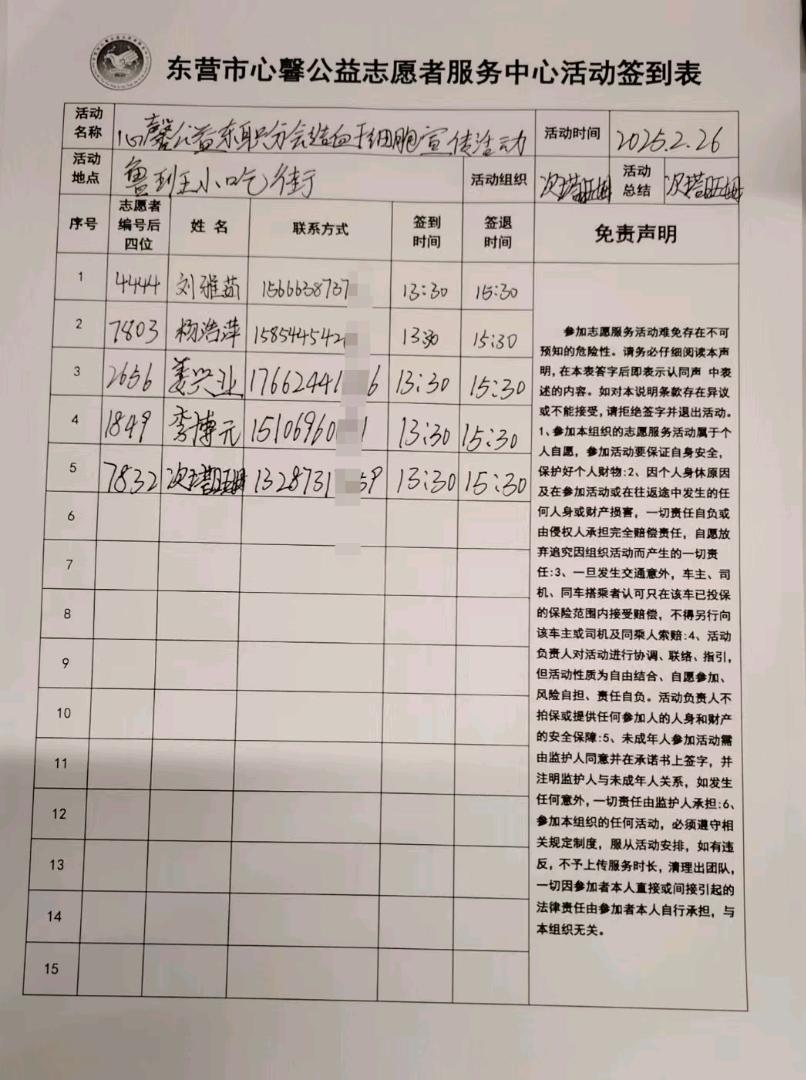 东营市心馨公益志愿者服务中心活动签到表
活动名称 心馨公益东职分会造血干细胞宣传活动 活动时间 2025.2.26
活动地点 鲁班王小吃街 活动组织 次塔旺姆 活动总结 次塔旺姆
序号 志愿者编号后四位 姓名 联系方式 签到时间 签退时间 免责声明
1 4444 刘雅茹 1566638737 13:30 15:30
2 7803 杨浩萍 158544542 13:30 15:30
3 2656 姜兴业 17662441 6 13:30 15:30
4 1849 李博元 15106960 1 13:30 15:30
5 7832 次塔旺姆 1328731 59 13:30 15:30
6
7
8
9
10
11
12
13
14
15
参加志愿服务活动难免存在不可
预知的危险性。请务必仔细阅读本声
明,在本表签字后即表示认同声 中表
述的内容。如对本说明条款存在异议
或不能接受,请拒绝签字并退出活动。
1、参加本组织的志愿服务活动属于个
人自愿,参加活动要保证自身安全,
保护好个人财物:2、因个人身休原因
及在参加活动或在往返途中发生的任
何人身或财产损害,一切责任自负或
由侵权人承担完全赔偿责任,自愿放
弃追究因组织活动而产生的一切责
任:3、一旦发生交通意外,车主、司
机、同车搭乘者认可只在该车已投保
的保险范围内接受赔偿,不得另行向
该车主或司机及同乘人索赔:4、活动
负责人对活动进行协调、联络、指引,
但活动性质为自由结合、自愿参加、
风险自担、责任自负。活动负责人不
拍保或提供任何参加人的人身和财产
的安全保障:5、未成年人参加活动需
由监护人同意并在承诺书上签字,并
注明监护人与未成年人关系,如发生
任何意外,一切责任由监护人承担:6、
参加本组织的任何活动,必须遵守相
关规定制度,服从活动安排,如有违
反,不予上传服务时长,清理出团队,
一切因参加者本人直接或间接引起的
法律责任由参加者本人自行承担,与
本组织无关。